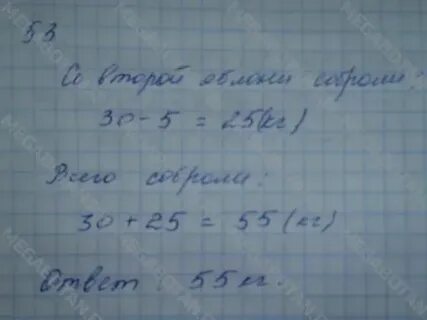 53
Со второй яблони собрали:
30 - 5 = 25 (кг)
Всего собрали:
30 + 25 = 55 (кг)
Ответ: 55 кг.